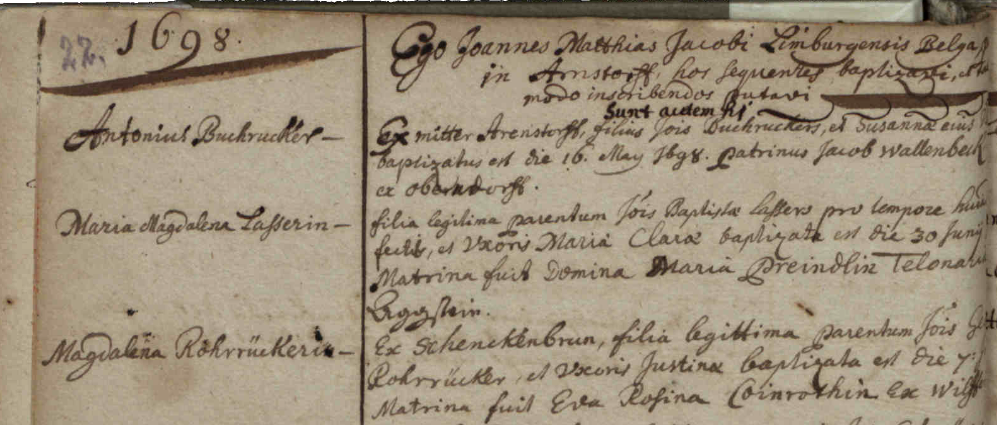 22. 1698.
Ego Joannes Matthias Jacobi Limburgensis Belga
in Arnstorff, hos sequentes baptizavi, et
modo inscribendos putavi
Sunt autem hi
Antonius Buchrucker
Ex mitter Arenstorff, filius Jois Buchruckers, et Susannæ eius
baptizatus est die 16. May 1698. patrinus Jacob Wallenbeck
ex oberndorff.
Maria Magdalena Lasserin
filia legitima parentum Jois Baptistæ Lassers pro tempore
fecti, et Uxoris Maria Claræ baptizata est die 30 Juny
Matrina fuit Domina Maria Preindlin
Aggstein.
Magdalena Rohrrückerin
Ex Schenckenbrun, filia legittima parentum Jois
Rohrrücker, et Uxoris Justinæ baptizata est die 7:
Matrina fuit Eva Rosina Ex